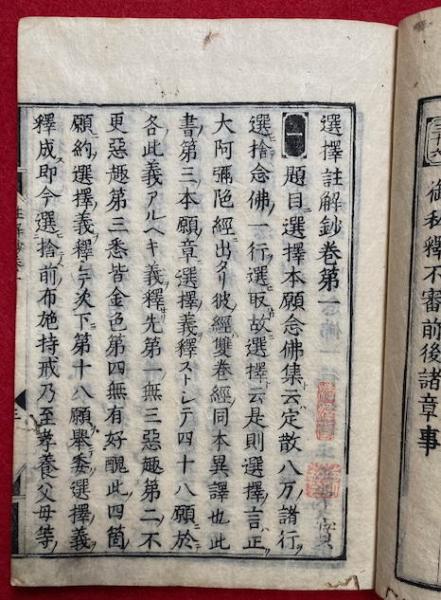 御私釋不審前後諸章事
選擇註解鈔卷第一
一 題目選擇本願念佛集云定散八万諸行ヲ
選捨念佛ノ一行ヲ選取故ニ選擇ト云是則選擇ノ言正ク
大阿彌陀經ニ出タリ彼經ハ雙卷經ト同本異譯也此
書第三本願章ニ選擇ノ義ヲ釋ストシテ四十八願ニ於テ
各此義アルヘキ義ヲ釋ス先第一無三惡趣第二不
更惡趣第三悉皆金色第四無有好醜此四箇
願ニ約シテ選擇ノ義ヲ釋シテ次下ニ第十八願ヲ舉テ委ク選擇ノ義ヲ
釋成ス即今選捨前布施持戒乃至孝養父母等ノ